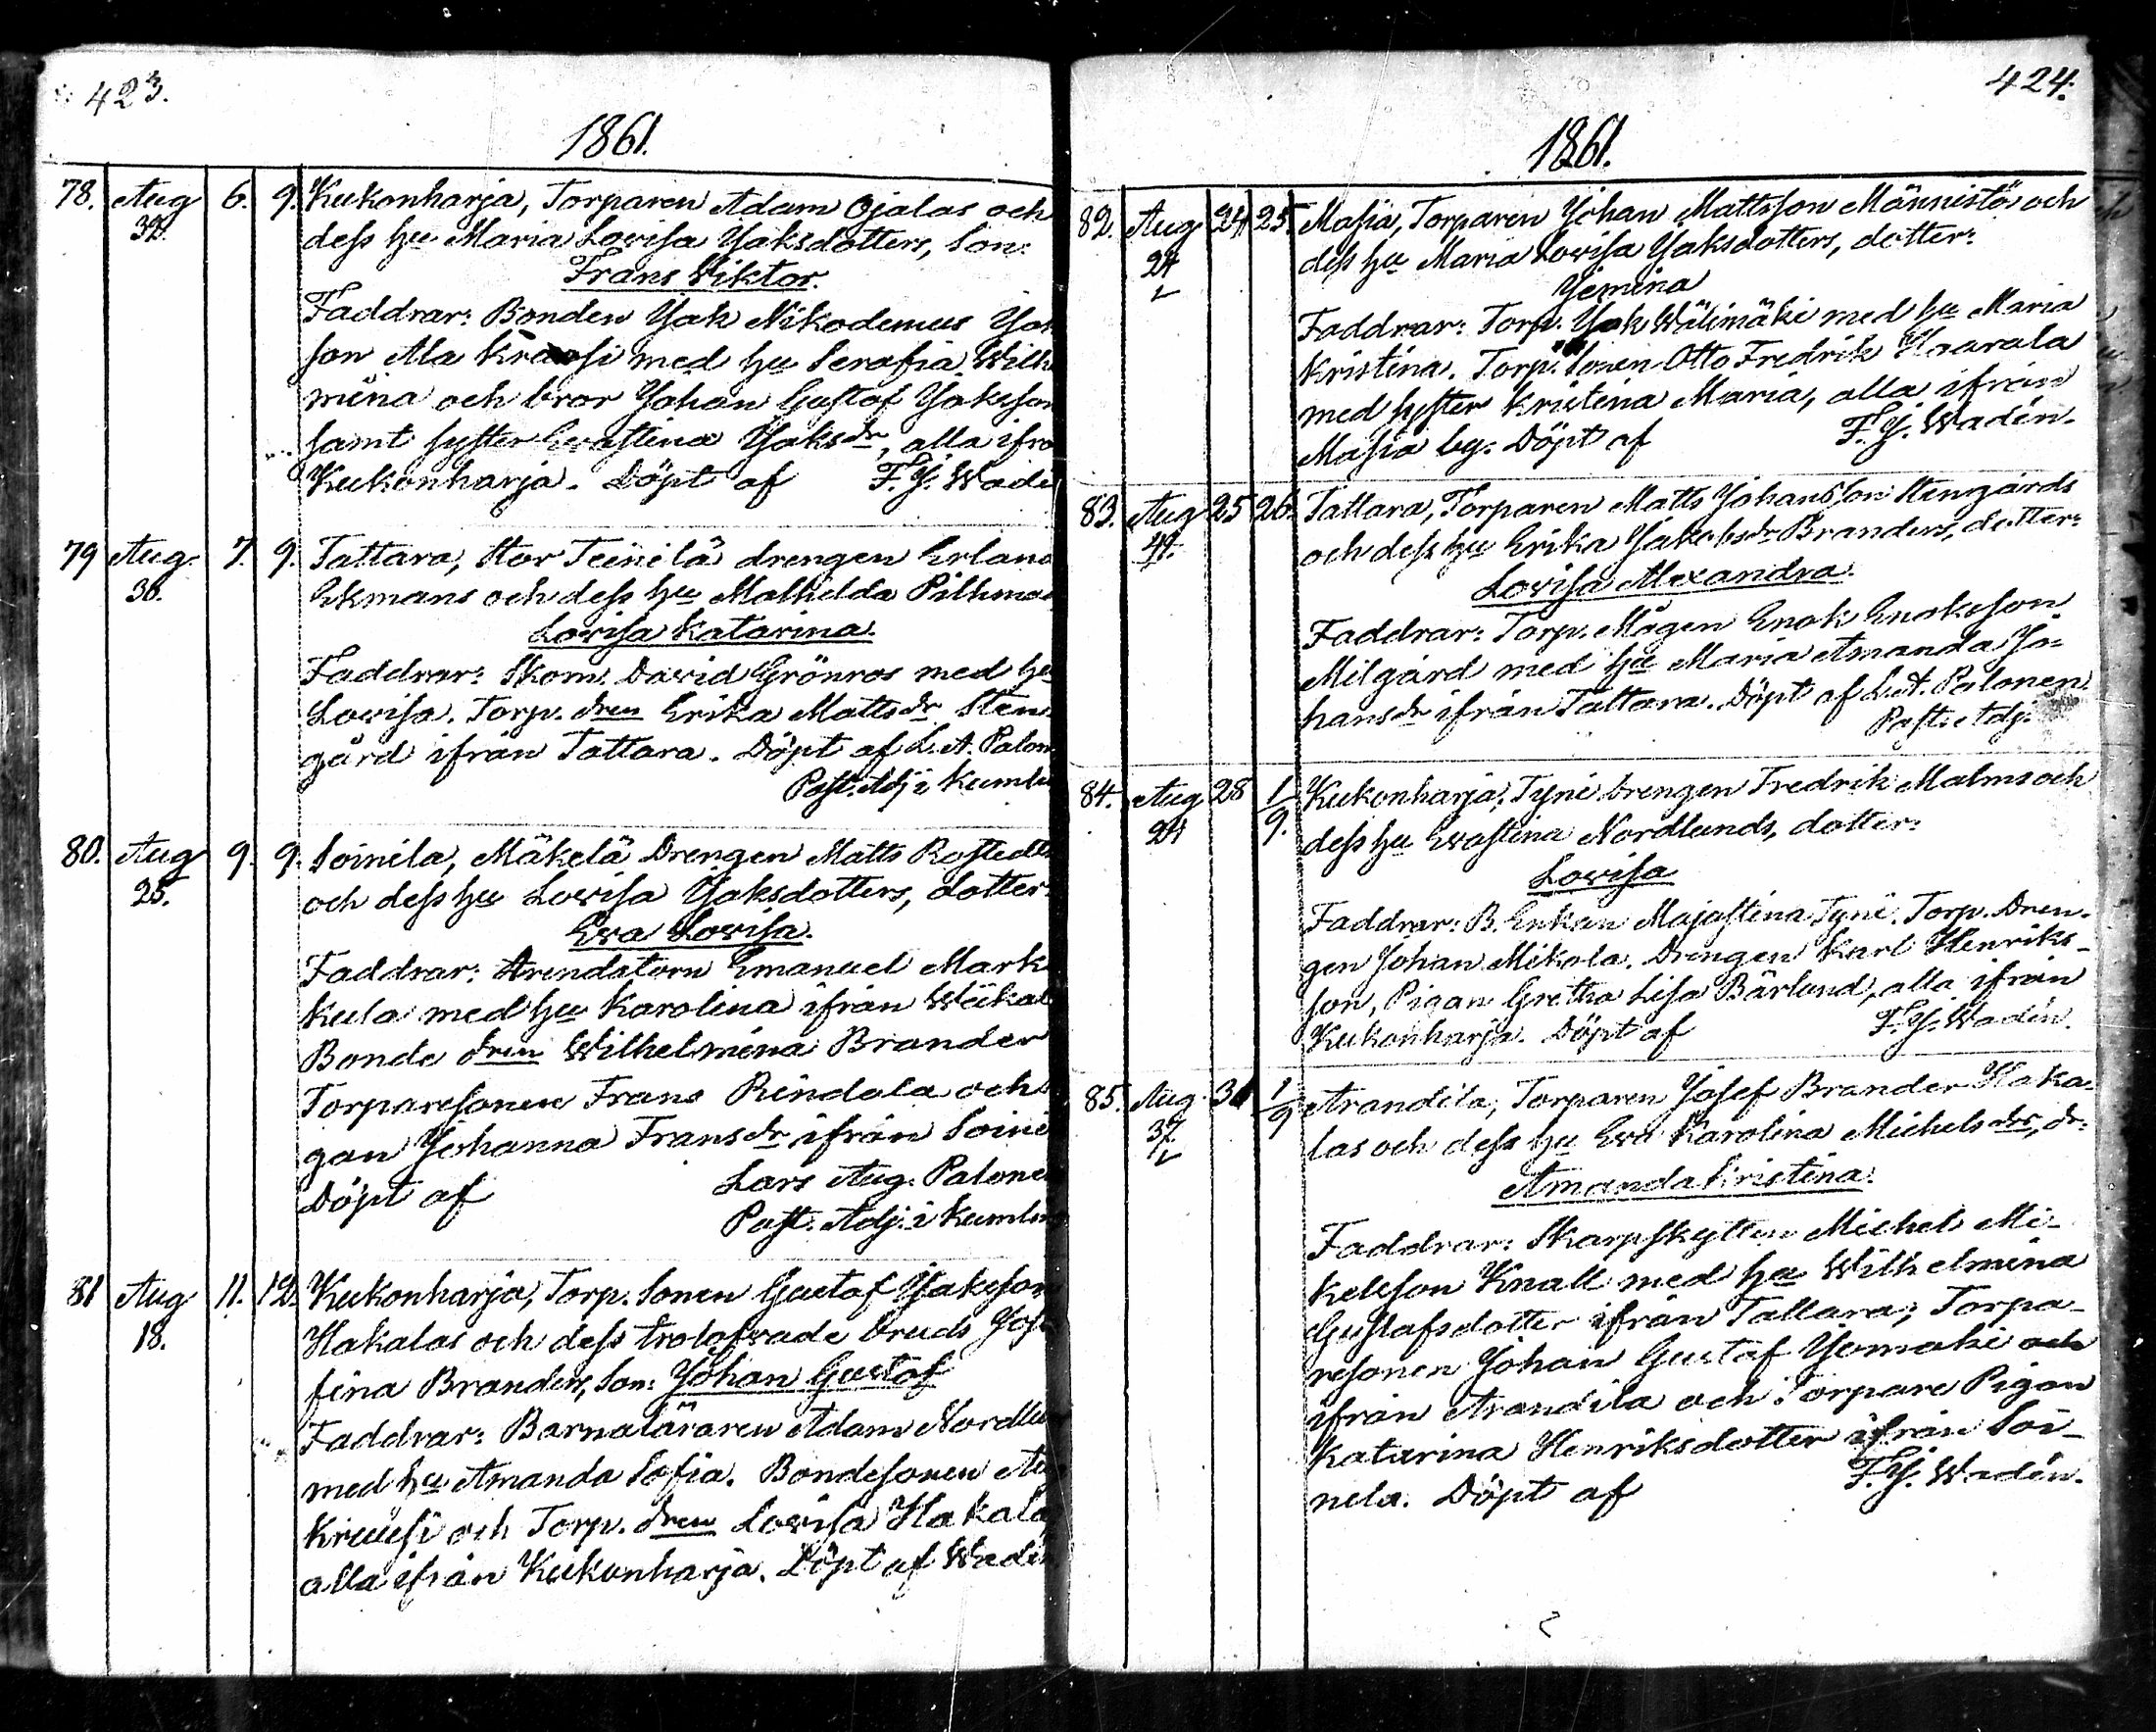 423.
1861.
78. Aug 6. 9. Kukonharja, Torparen Adam Ojalas och
32. dess hu Maria Lovisa Jaksdotters, Son:
Frans Viktor.
Faddrar: Bonden Jak Nikodemus Jak
son Ala Krassi med hu Serafia Wilh
mina och bror Johan Gustaf Jaksson
samt syster Evastina Jaksdr, alla ifrå
Kukonharja. Döpt af F. J. Wadé
79 Aug. 7. 9. Tattara, Stor Teinilä drengen Erland
30. Ekmans och dess hu Mathilda Pilkmas
Lovisa Katarina.
Faddrar: Skom. David Grönros med hu
Lovisa. Torp. dren Erika Mattsdr Sten
gård ifrån Tattara. Döpt af L. A. Palon
Past. Adj. i Kumla
80. Aug 9. 9. Soinila, Mäkelä Drengen Matts Rostedts
25. och dess hu Lovisa Jaksdotters, dotter:
Eva Lovisa.
Faddrar: Arendatorn Emanuel Mark
kula med hu Karolina ifrån Wäkal
Bonde dren Wilhelmina Brander
Torparesonen Frans Rindala och
gan Johanna Fransdr ifrån Soini
Döpt af Lars Aug. Palone
Past. Adj. i Kumla
81 Aug 11. 12. Kukonharja, Torp. Sonen Gustaf Jaksson
18. Hakalas och dess trolofvade bruds Jose
fina Branders, Son: Johan Gustaf
Faddrar: Barnaläraren Adam Nordlu
med hu Amanda Sofia. Bondesonen Au
Kruusi och Torp. dren Lovisa Hakala
alla ifrån Kukonharja. Döpt af Wadén
424.
1861.
82. Aug 24 25. Masia, Torparen Johan Mattsson Männistö och
24 dess hu Maria Lovisa Jaksdotters, dotter:
Jemina
Faddrar: Torp. Jak Wälimäki med hu Maria
Kristina. Torp. Sonen Otto Fredrik Haarala
med syster Kristina Maria, alla ifrån
Masia by. Döpt af F. J. Wadén.
83. Aug 25 26. Tattara, Torparen Matts Johansson Stengårds
41. och dess hu Erika Jakobsdr Branders, dotter:
Lovisa Alexandra.
Faddrar: Torp. Mågen Enok Enoksson
Milgård med hu Maria Amanda Jo=
hansdr ifrån Tattara. Döpt af L. A. Palonen
Past. Adj.
84. Aug 28 1/9. Kukonharja, Tyni Drengen Fredrik Malms och
24 dess hu Evastina Nordlunds, dotter:
Lovisa
Faddrar: B. Enkan Majastina Tyni. Torp. Dren-
gen Johan Mikola. Drengen Karl Henriks-
son, Pigan Gretha Lisa Bärlund, alla ifrån
Kukonharja. Döpt af F. J. Wadén.
85. Aug 31 1/9 Arandila, Torparen Josef Brander Haka-
37. las och dess hu Eva Karolina Michelsdrs, dr:
Amanda Kristina.
Faddrar: Skarpskytten Michel Mi-
kelsson Knall med hu Wilhelmina
Gustafsdotter ifrån Tattara; Torpa-
resonen Johan Gustaf Jomaki och
ifrån Arandila och Torpare Pigan
Katarina Henriksdotter ifrån Soi-
nila. Döpt af F. J. Wadén.